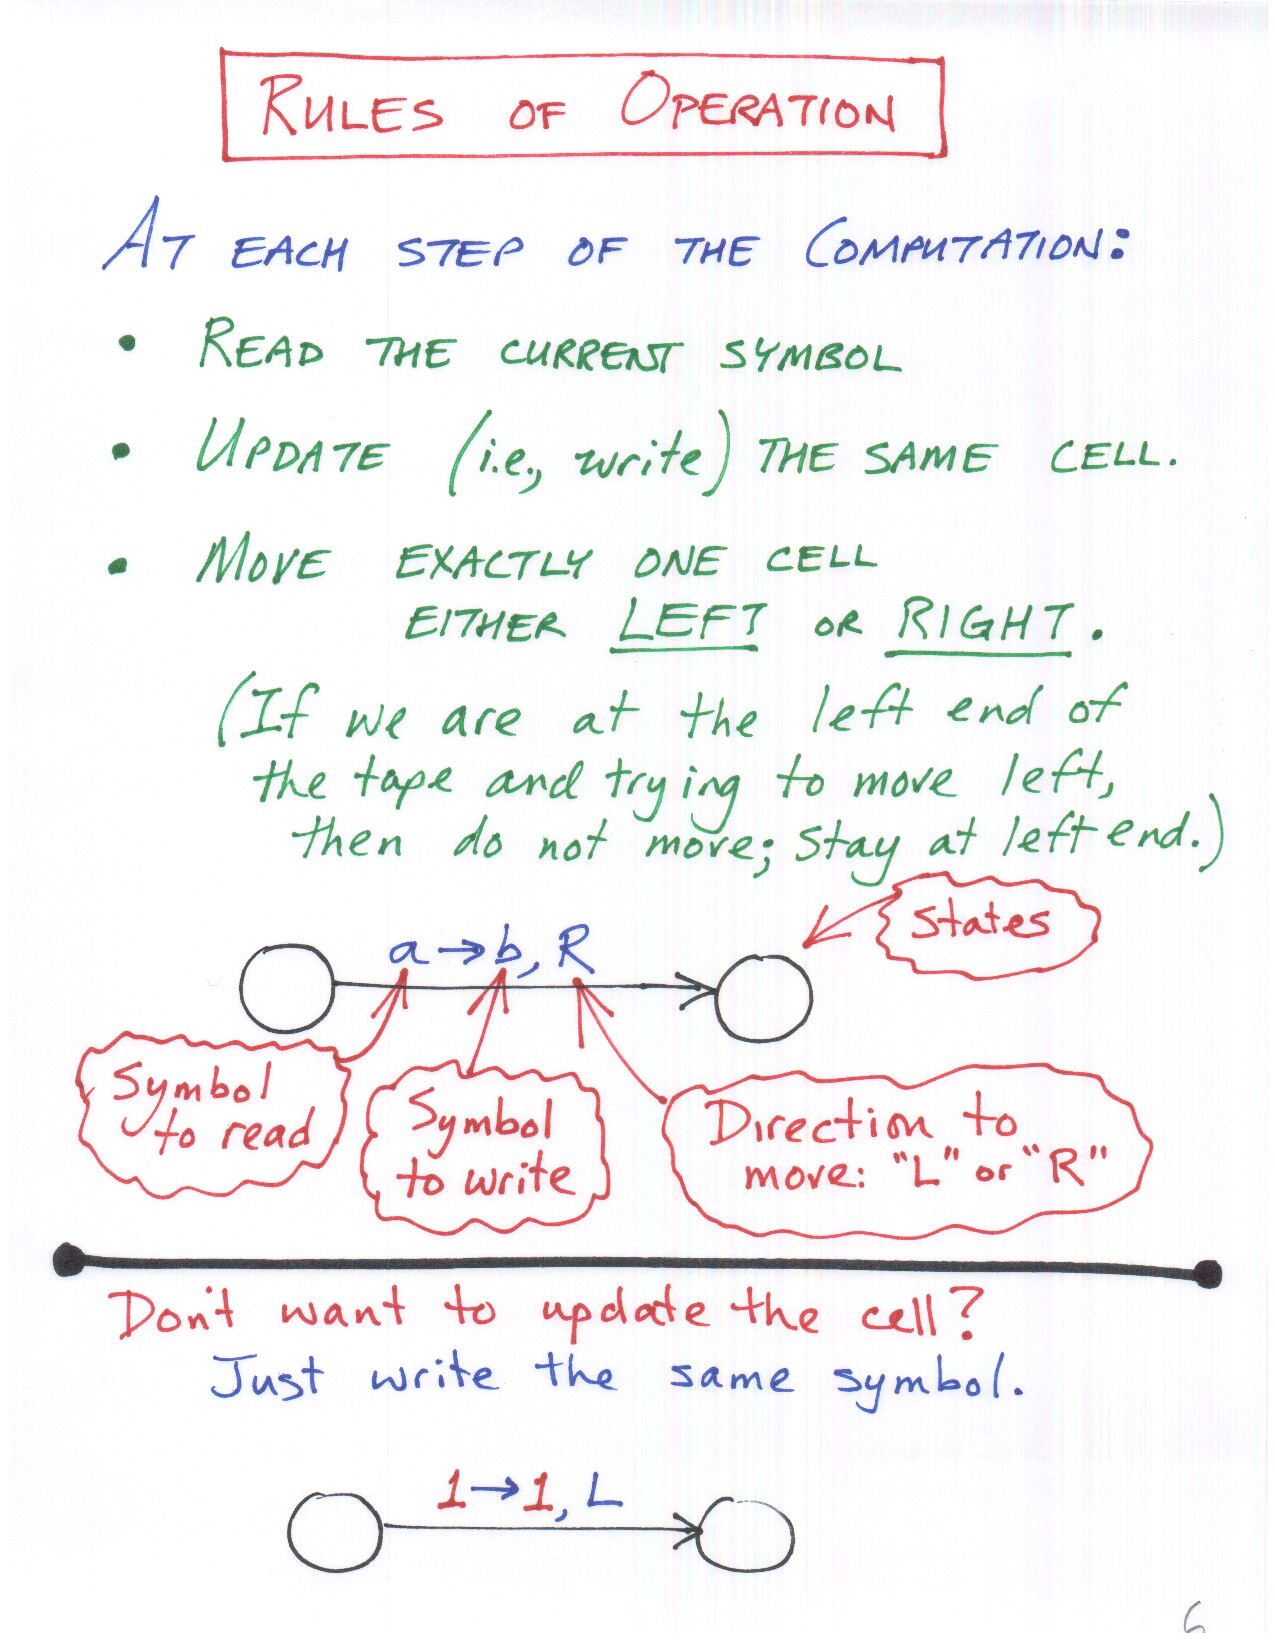 RULES OF OPERATION
AT EACH STEP OF THE COMPUTATION:
• READ THE CURRENT SYMBOL
• UPDATE (i.e., write) THE SAME CELL.
• MOVE EXACTLY ONE CELL
EITHER LEFT OR RIGHT.
(If we are at the left end of
the tape and trying to move left,
then do not move; stay at left end.)
States
a→b, R
Symbol
to read
Symbol
to write
Direction to
move: "L" or "R"
Don't want to update the cell?
Just write the same symbol.
1→1, L
6